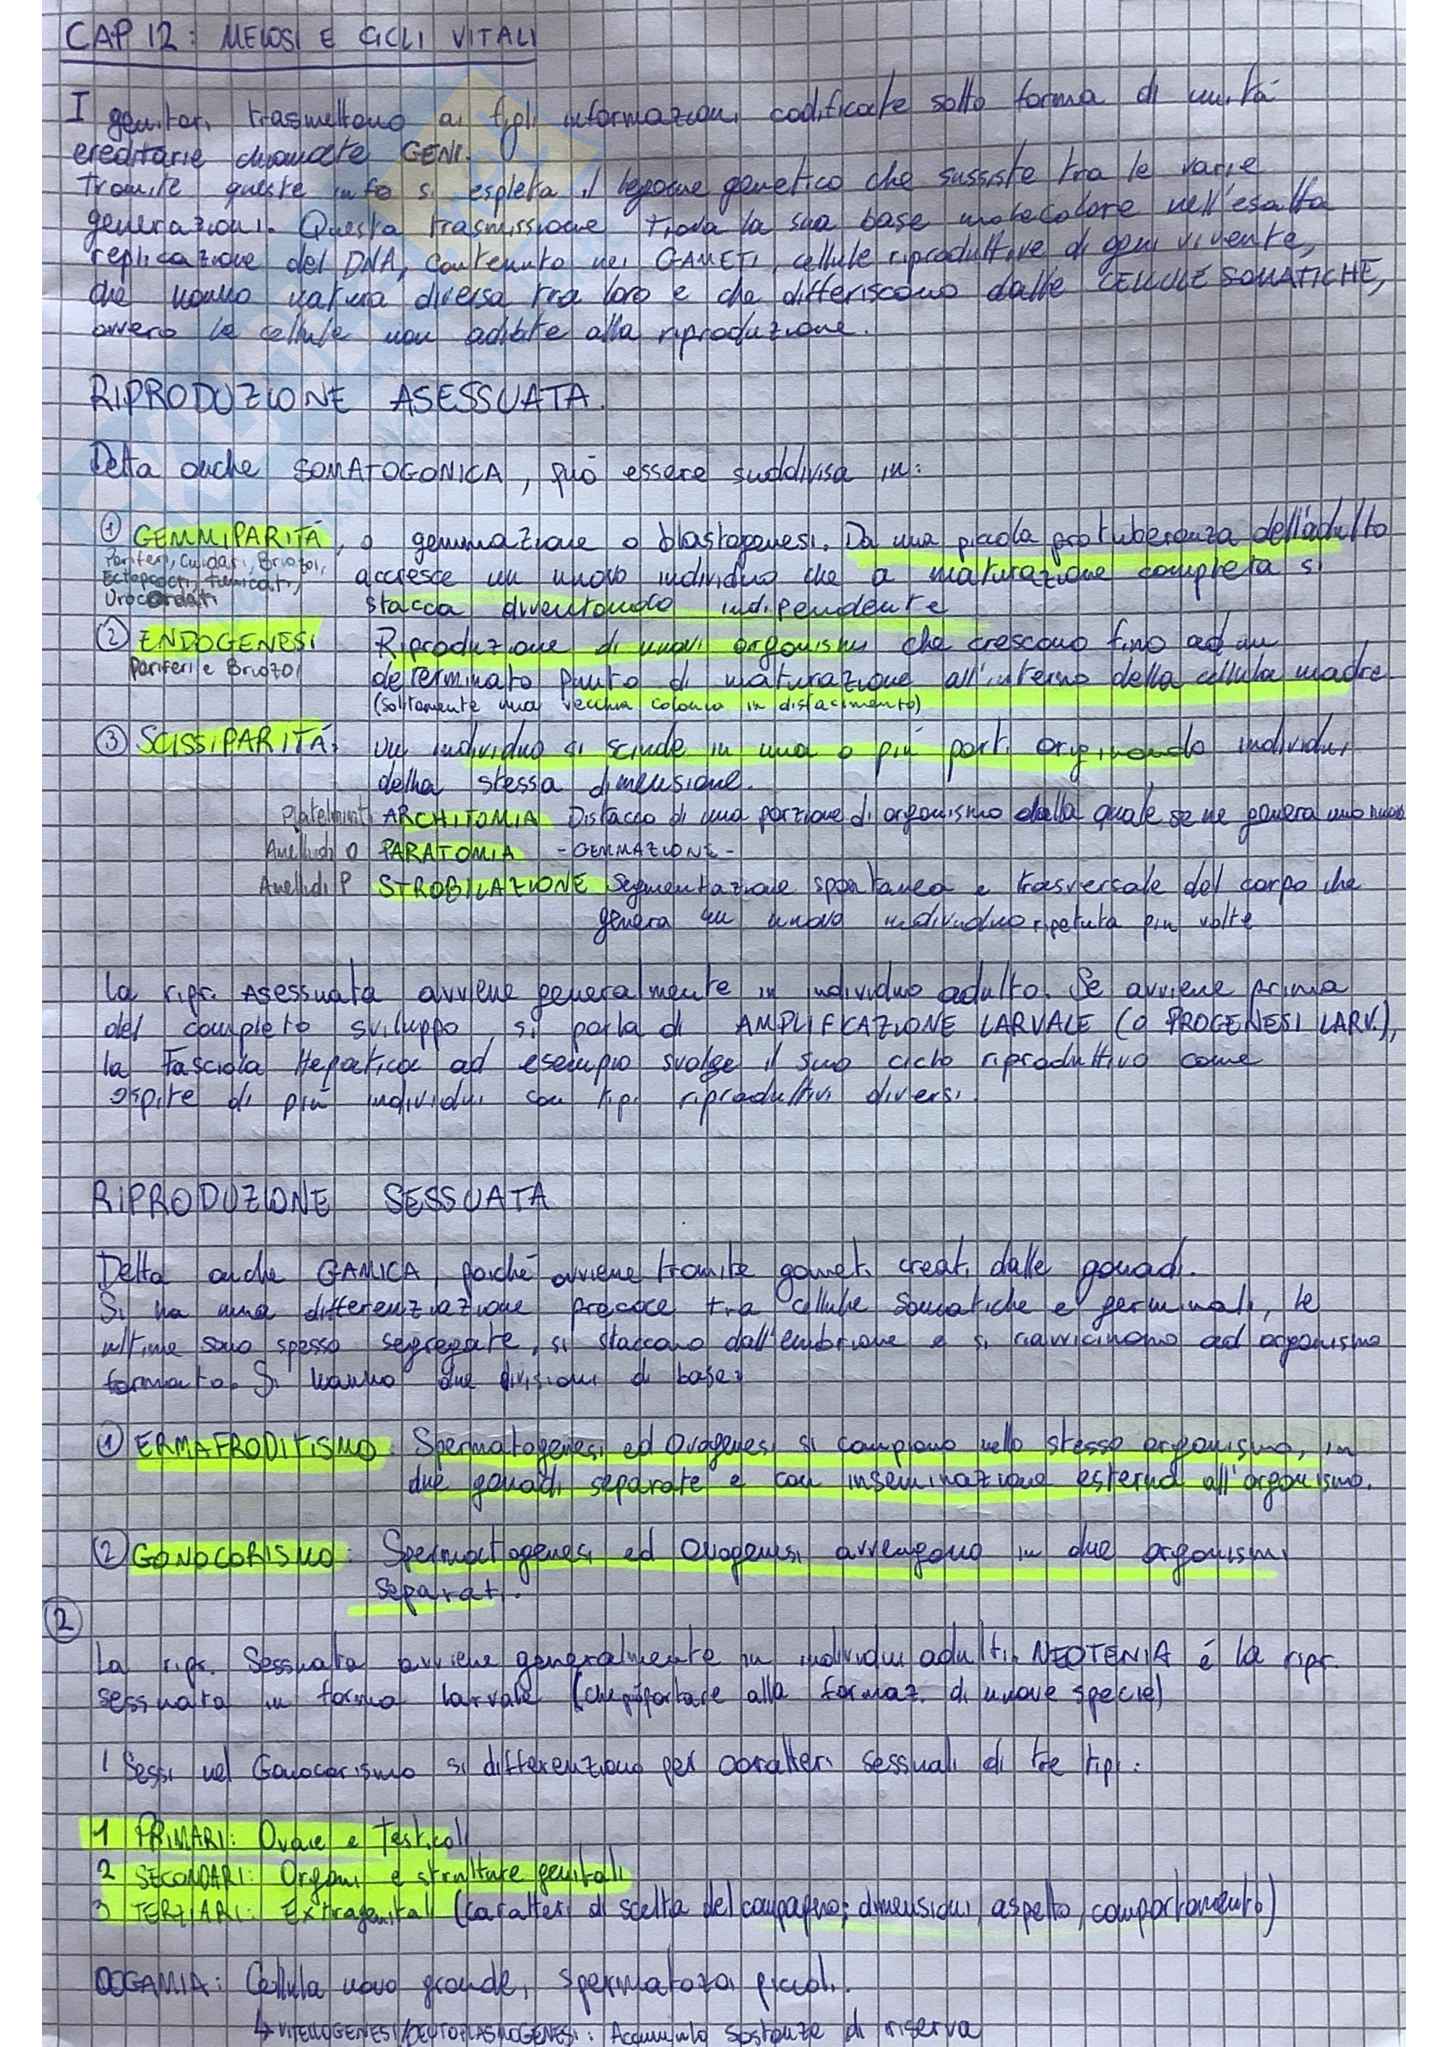 CAP 12: MEIOSI E CICLI VITALI
I genitori trasmettono ai figli informazioni codificate sotto forma di unità
ereditarie chiamate GENI.
Tramite queste info si espleta il legame genetico che sussiste tra le varie
generazioni. Questa trasmissione trova la sua base molecolare nell'esatta
replicazione del DNA, contenuto nei GAMETI, cellule riproduttive di ogni vivente,
che hanno natura diversa tra loro e che differiscono dalle CELLULE SOMATICHE,
ovvero le cellule non adibite alla riproduzione.
RIPRODUZIONE ASESSUATA
Detta anche SOMATOGONICA, può essere suddivisa in:
① GEMMIPARITÁ, o gemmazione o blastogenesi. Da una piccola protuberanza dell'adulto
Poriferi, Cnidari, Briozoi,
Ectoprocti, Tunicati,
Urocordati
accresce un nuovo individuo che a maturazione completa si
stacca diventando indipendente
② ENDOGENESI Riproduzione di nuovi organismi che crescono fino ad un
Poriferi e Briozoi
determinato punto di maturazione all'interno della cellula madre
(solitamente una vecchia colonia in disfacimento)
③ SCISSIPARITÁ: un individuo si scinde in una o più parti originando individui
della stessa dimensione.
Platelminti ARCHITOMIA Distacco di una porzione di organismo dalla quale se ne genera uno nuovo
Anellidi O PARATOMIA - GEMMAZIONE -
Anellidi P STROBILAZIONE Segmentazione spontanea e trasversale del corpo che
genera un nuovo individuo ripetuta più volte
La ripr. Asessuata avviene generalmente in individuo adulto. Se avviene prima
del completo sviluppo si parla di AMPLIFICAZIONE LARVALE (O PROGENESI LARV.),
la Fasciola Hepatica ad esempio svolge il suo ciclo riproduttivo come
ospite di più individui con tipi riproduttivi diversi.
RIPRODUZIONE SESSUATA
Detta anche GAMICA, poiché avviene tramite gameti creati dalle gonadi.
Si ha una differenziazione precoce tra cellule somatiche e germinali, le
ultime sono spesso segregate, si staccano dall'embrione e si riavvicinano ad organismo
formato. Si hanno due divisioni di base:
① ERMAFRODITISMO: Spermatogenesi ed Ovogenesi si compiono nello stesso organismo, in
due gonadi separate e con inseminazione esterna all'organismo.
② GONOCORISMO: Spermatogenesi ed Ovogenesi avvengono in due organismi
separati.
②
La ripr. Sessuata avviene generalmente in individui adulti. NEOTENIA é la ripr.
sessuata in forma larvale (che può portare alla formaz. di nuove specie)
I Sessi nel Gonocorismo si differenziano per caratteri sessuali di tre tipi:
1 PRIMARI: Ovaie e Testicoli
2 SECONDARI: Organi e strutture genitali
3 TERZIARI: Extragenitali (caratteri di scelta del compagno; dimensioni, aspetto, comportamento)
OOGAMIA: Cellula uovo grande, spermatozoi piccoli.
↳ VITELLOGENESI/DEUTOPLASMOGENESI: Accumulo sostanze di riserva